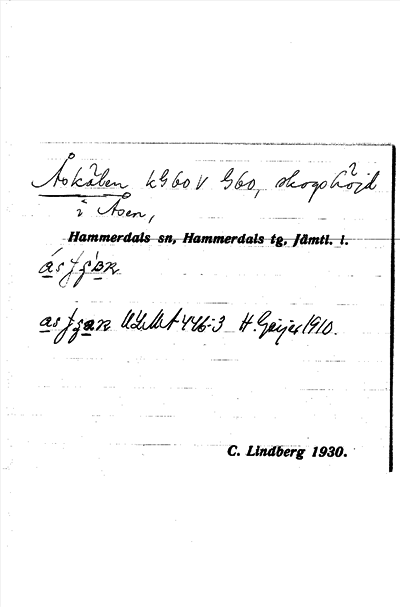 Åskölen kG60V G60, skogshöjd
i Åsen,
Hammerdals sn, Hammerdals tg, Jämtl. l.
ULMA 446:3 H. Geijer 1910.
C. Lindberg 1930.